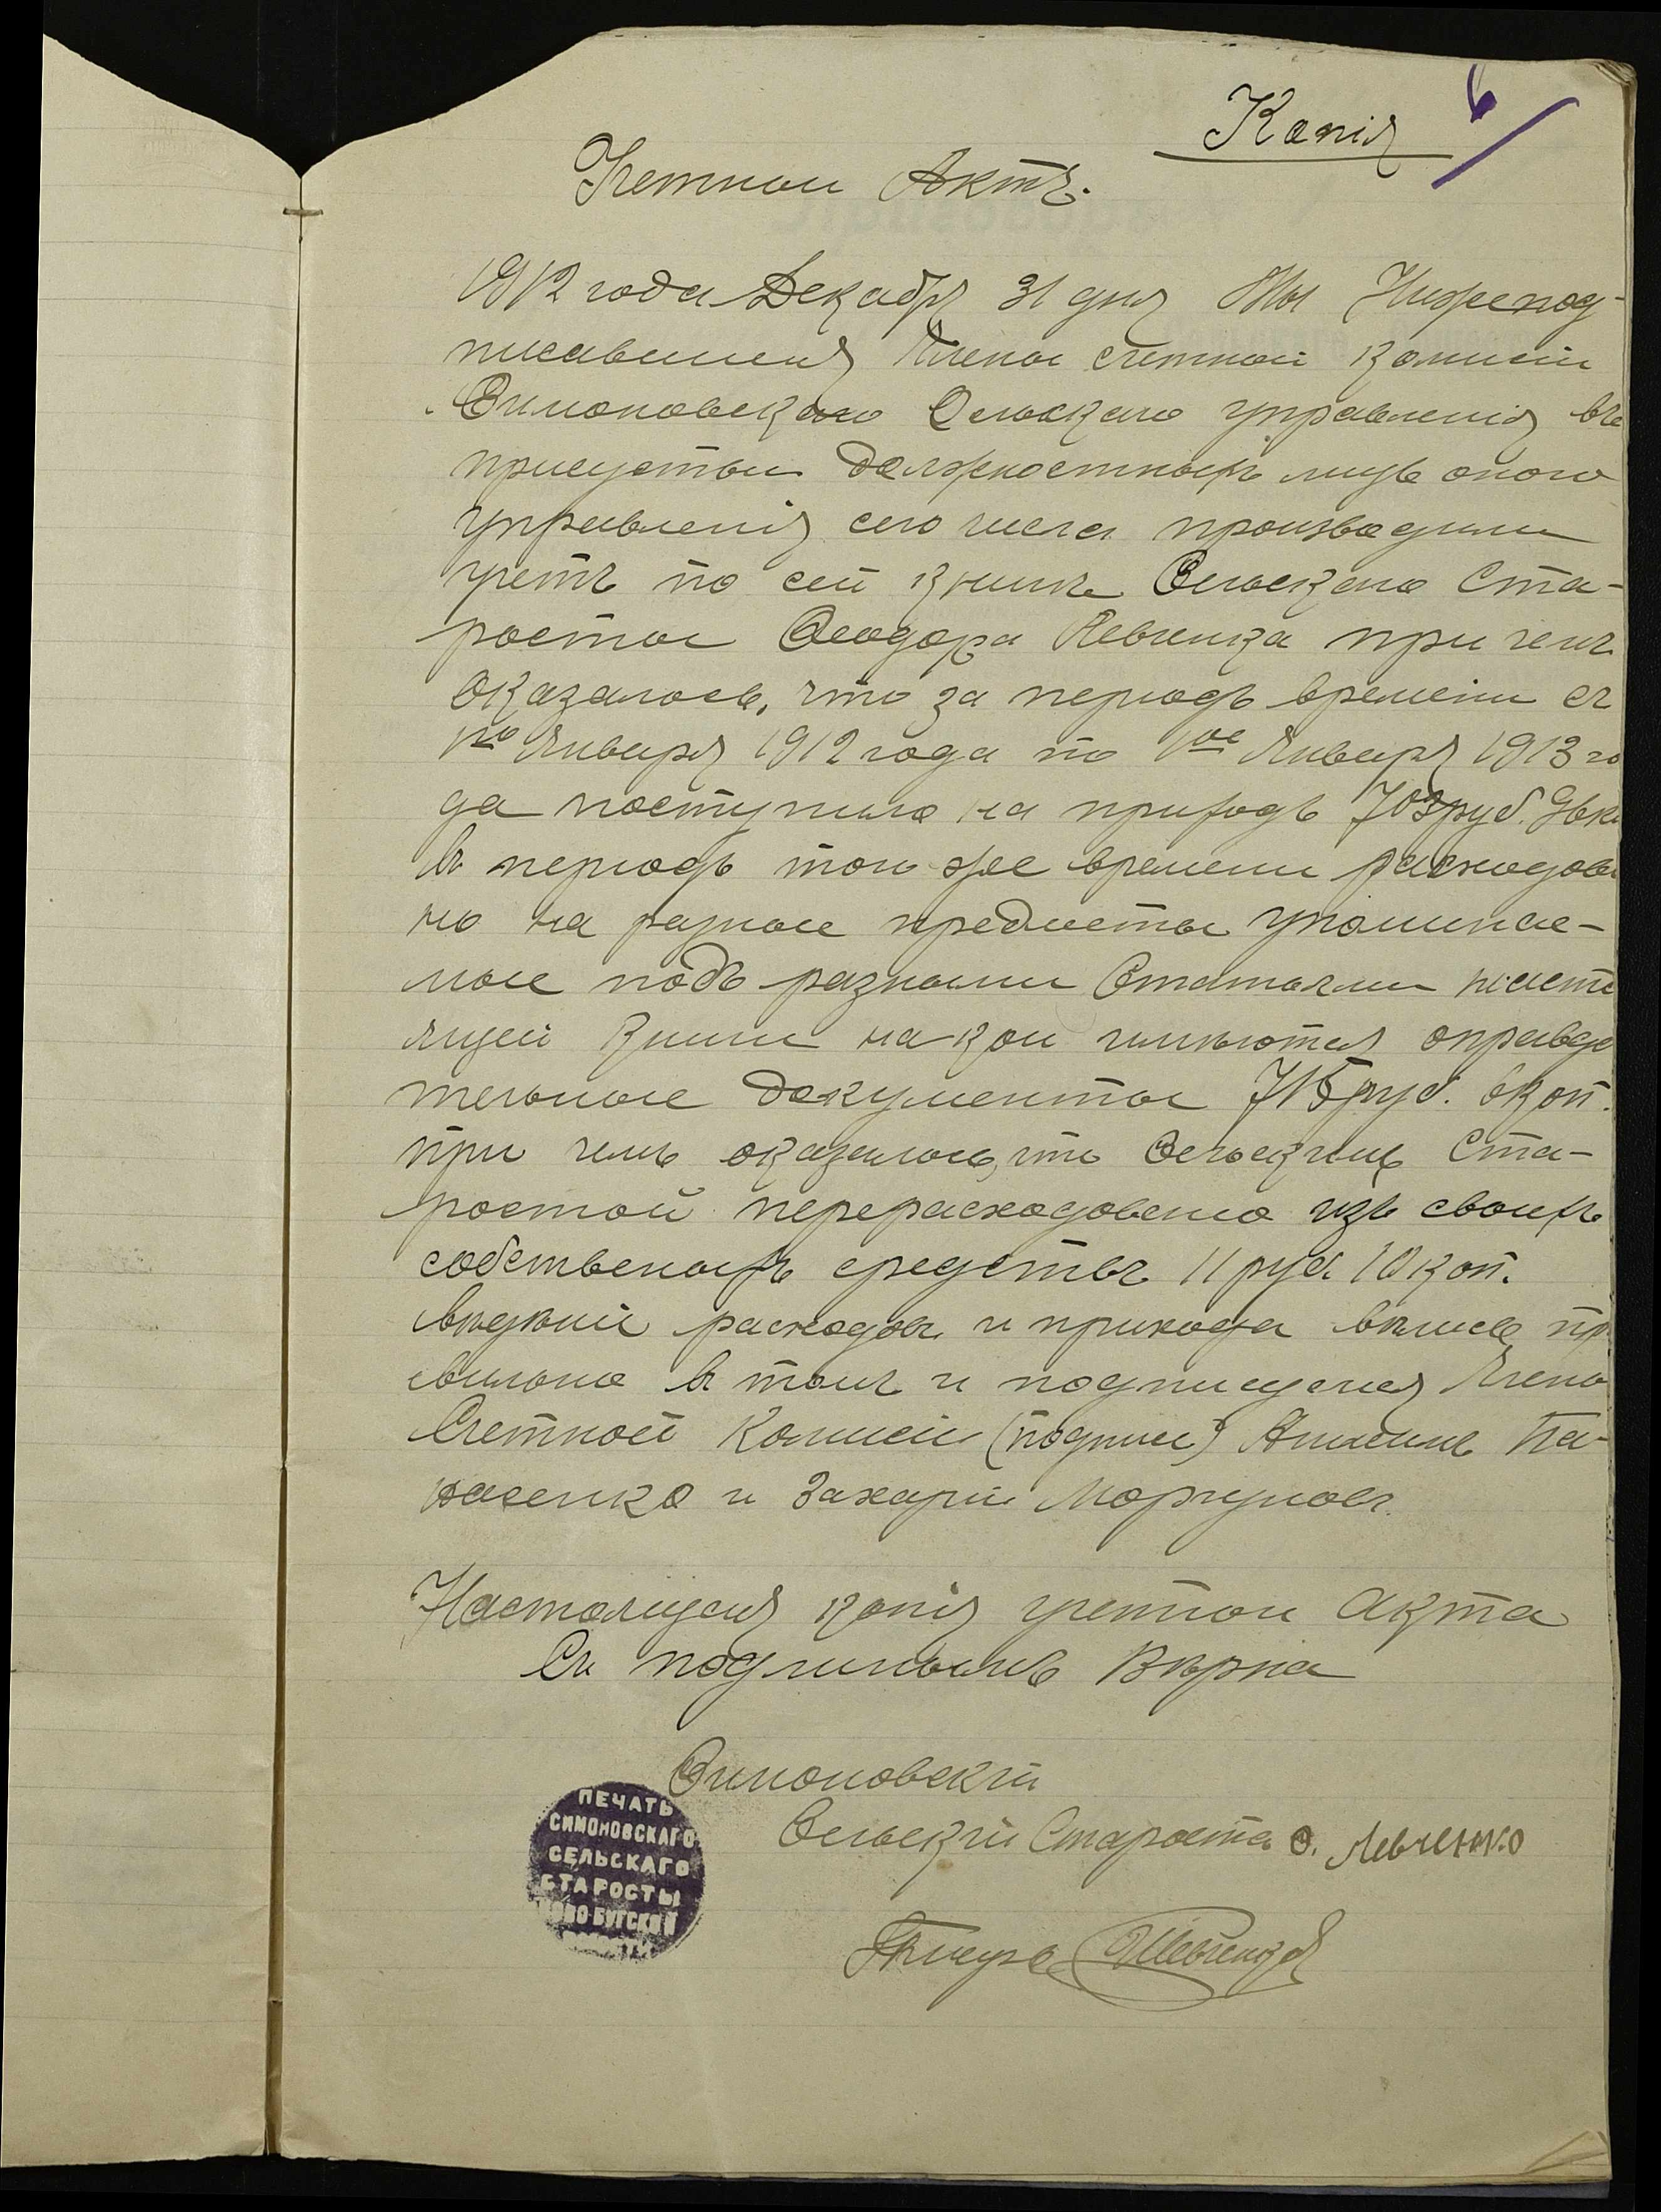 6
Копія
Учетный Актъ.
1912 года Декабря 31 дня Мы Нижепод-
писавшися Члены счетной комисіи
Симоновскаго Сельскаго управленія въ
присуствіи должностныхъ лицъ оного
управленія сего числа производили
учетъ по сей книгѣ Сельскаго Ста-
росты Ѳеодора Левченка при чемъ
оказалось, что за періодъ времени съ
1го Января 1912 года по 1ое Января 1913 го
да поступило на приходъ 703 руб. 96 к
Въ періодъ той же времени расходова
но на разные предметы упоминае-
мые подъ разными Статьями насто
ящей книги на кои имѣются оправда
тельные документы 715 руб. 6 коп.
при чемъ оказалось, что Сельскимъ Ста-
ростой перерасходовано изъ своихъ
собственыхъ средствъ 11 руб. 10 коп.
расходовъ и прихода
вильно въ томъ и подписуемся Члены
Счетной Комисіи (подписи) Па-
насенко и Захарій Моргуновъ.
Настоящая копія учетной Акта
Съ подлинымъ Вѣрна
Симоновскій
Сельскій Староста Ѳ. Левченко
Писарь Шевченко
ПЕЧАТЬ
СИМОНОВСКАГО
СЕЛЬСКАГО
СТАРОСТЫ
НОВО-БУГСКОЙ